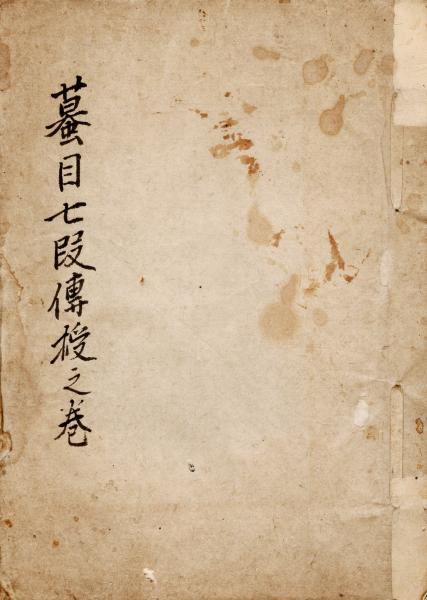 蟇目七段傳授之巻